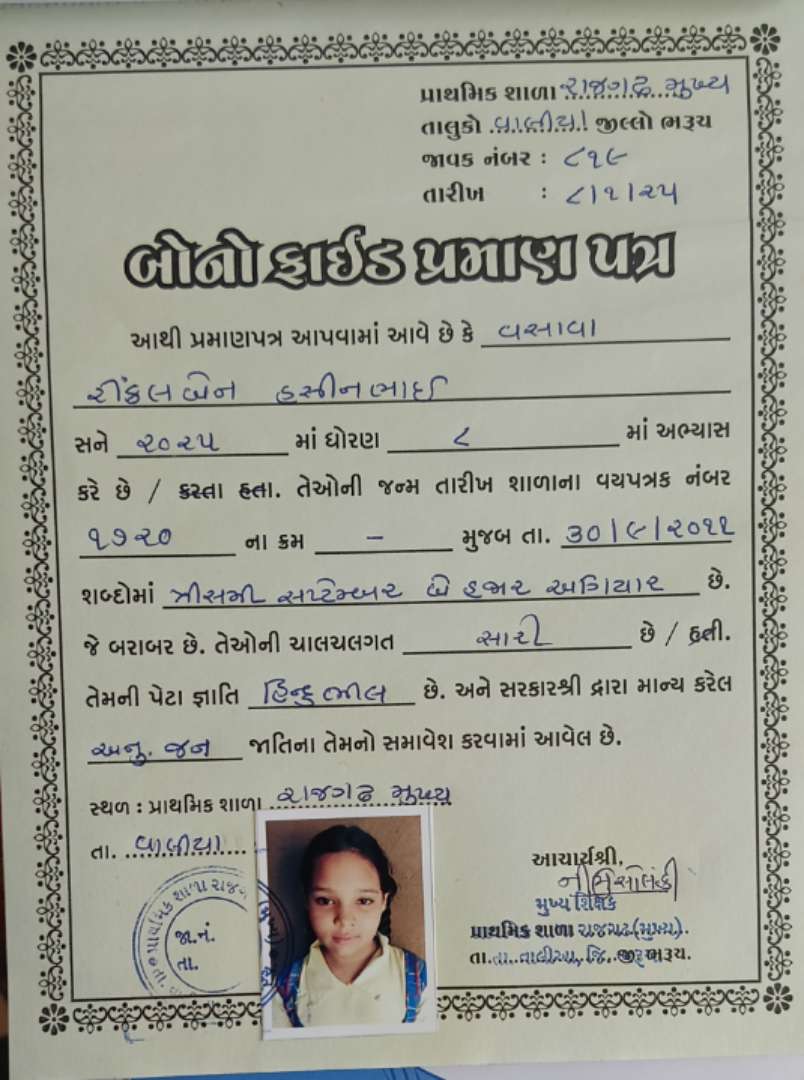 પ્રાથમિક શાળા રાજગઢ મુખ્ય
તાલુકો વાલીયા જીલ્લો ભરૂચ
જાવક નંબર : ૮૧૯
તારીખ : ૮/૧/૨૫
બોનો ફાઈડ પ્રમાણ પત્ર
આથી પ્રમાણપત્ર આપવામાં આવે છે કે વસાવા
રીંકલબેન હસીનભાઈ
સને ૨૦૨૫ માં ધોરણ ૮ માં અભ્યાસ
કરે છે / કરતા હતા. તેઓની જન્મ તારીખ શાળાના વયપત્રક નંબર
૧૭૨૦ ના ક્રમ - મુજબ તા. ૩૦/૯/૨૦૧૧
શબ્દોમાં ત્રીસમી સપ્ટેમ્બર બે હજાર અગિયાર છે.
જે બરાબર છે. તેઓની ચાલચલગત સારી છે / હતી.
તેમની પેટા જ્ઞાતિ હિન્દુ ભીલ છે. અને સરકારશ્રી દ્વારા માન્ય કરેલ
અનુ. જન જાતિના તેમનો સમાવેશ કરવામાં આવેલ છે.
સ્થળ : પ્રાથમિક શાળા રાજગઢ મુખ્ય
તા. વાલીયા
આચાર્યશ્રી,
મુખ્ય શિક્ષક
પ્રાથમિક શાળા રાજગઢ(મુખ્ય).
તા. જિ. ભરૂચ.
પ્રાથમિક શાળા રાજ
જા.નં.
તા.